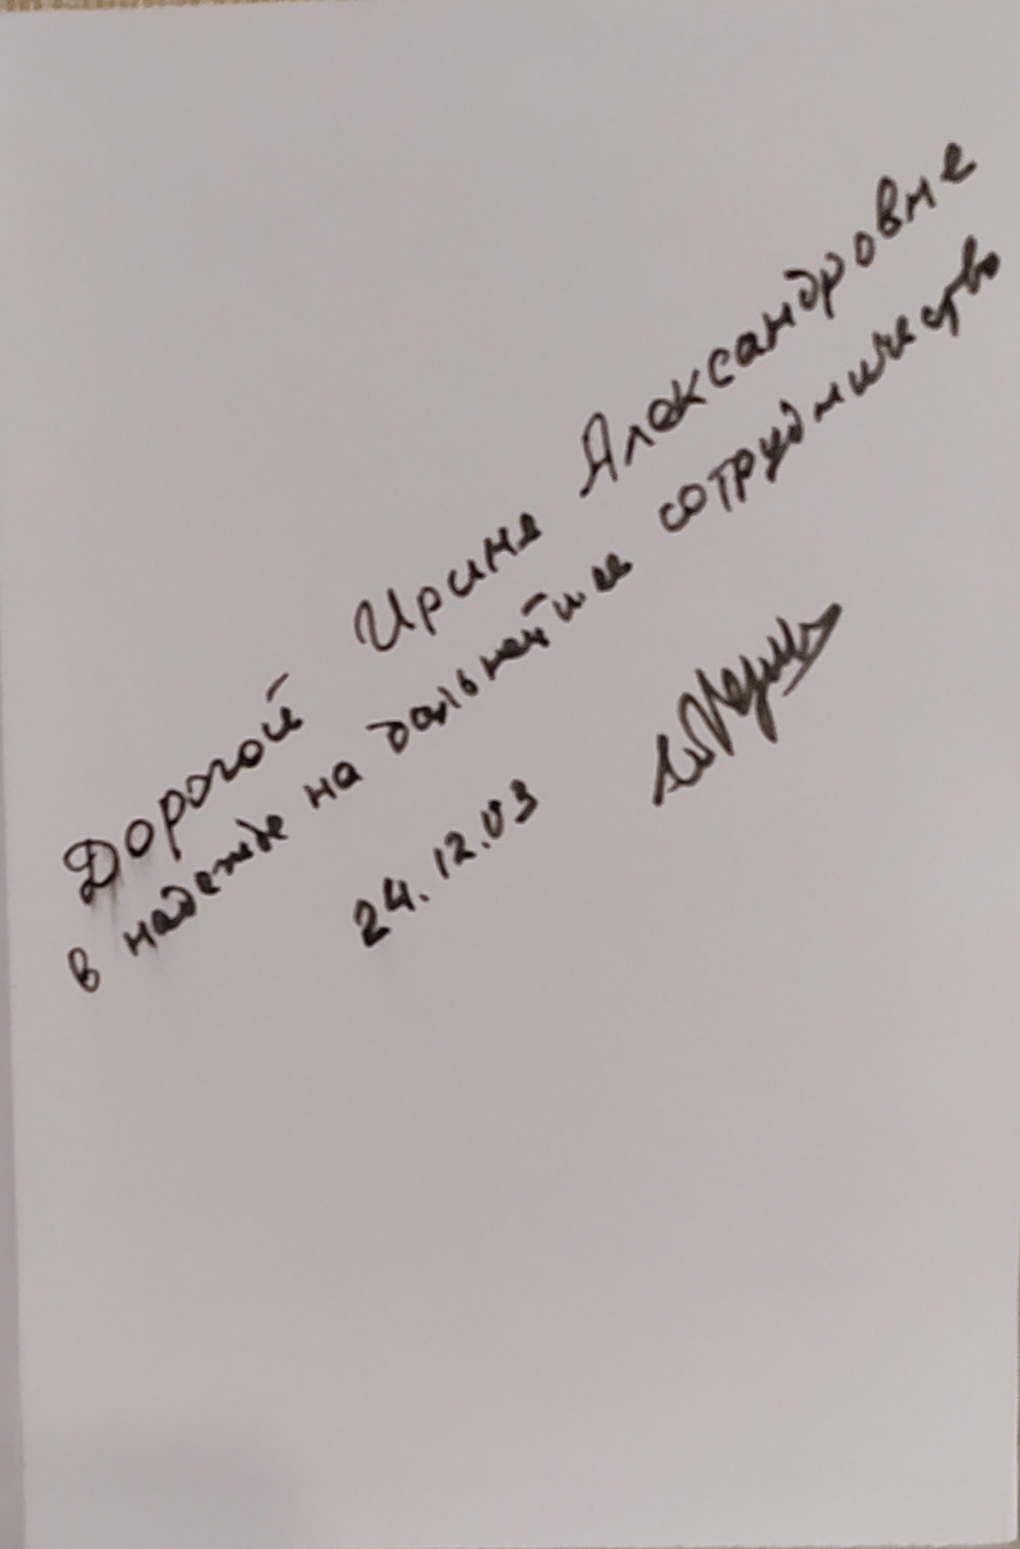 Дорогой Ирине Александровне
в надежде на дальнейшее сотрудничество
24.12.03